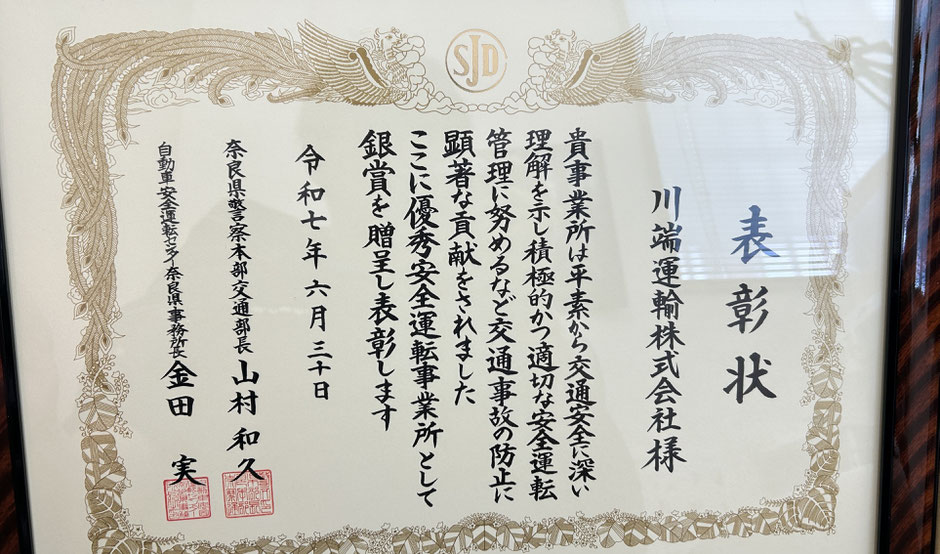 SJD
表彰状
川端運輸株式会社様
貴事業所は平素から交通安全に深い
理解を示し積極的かつ適切な安全運転
管理に努めるなど交通事故の防止に
顕著な貢献をされました
ここに優秀安全運転事業所として
銀賞を贈呈し表彰します
令和七年六月三十日
奈良県警察本部交通部長 山村和久
自動車安全運転センター奈良県事務所長 金田実